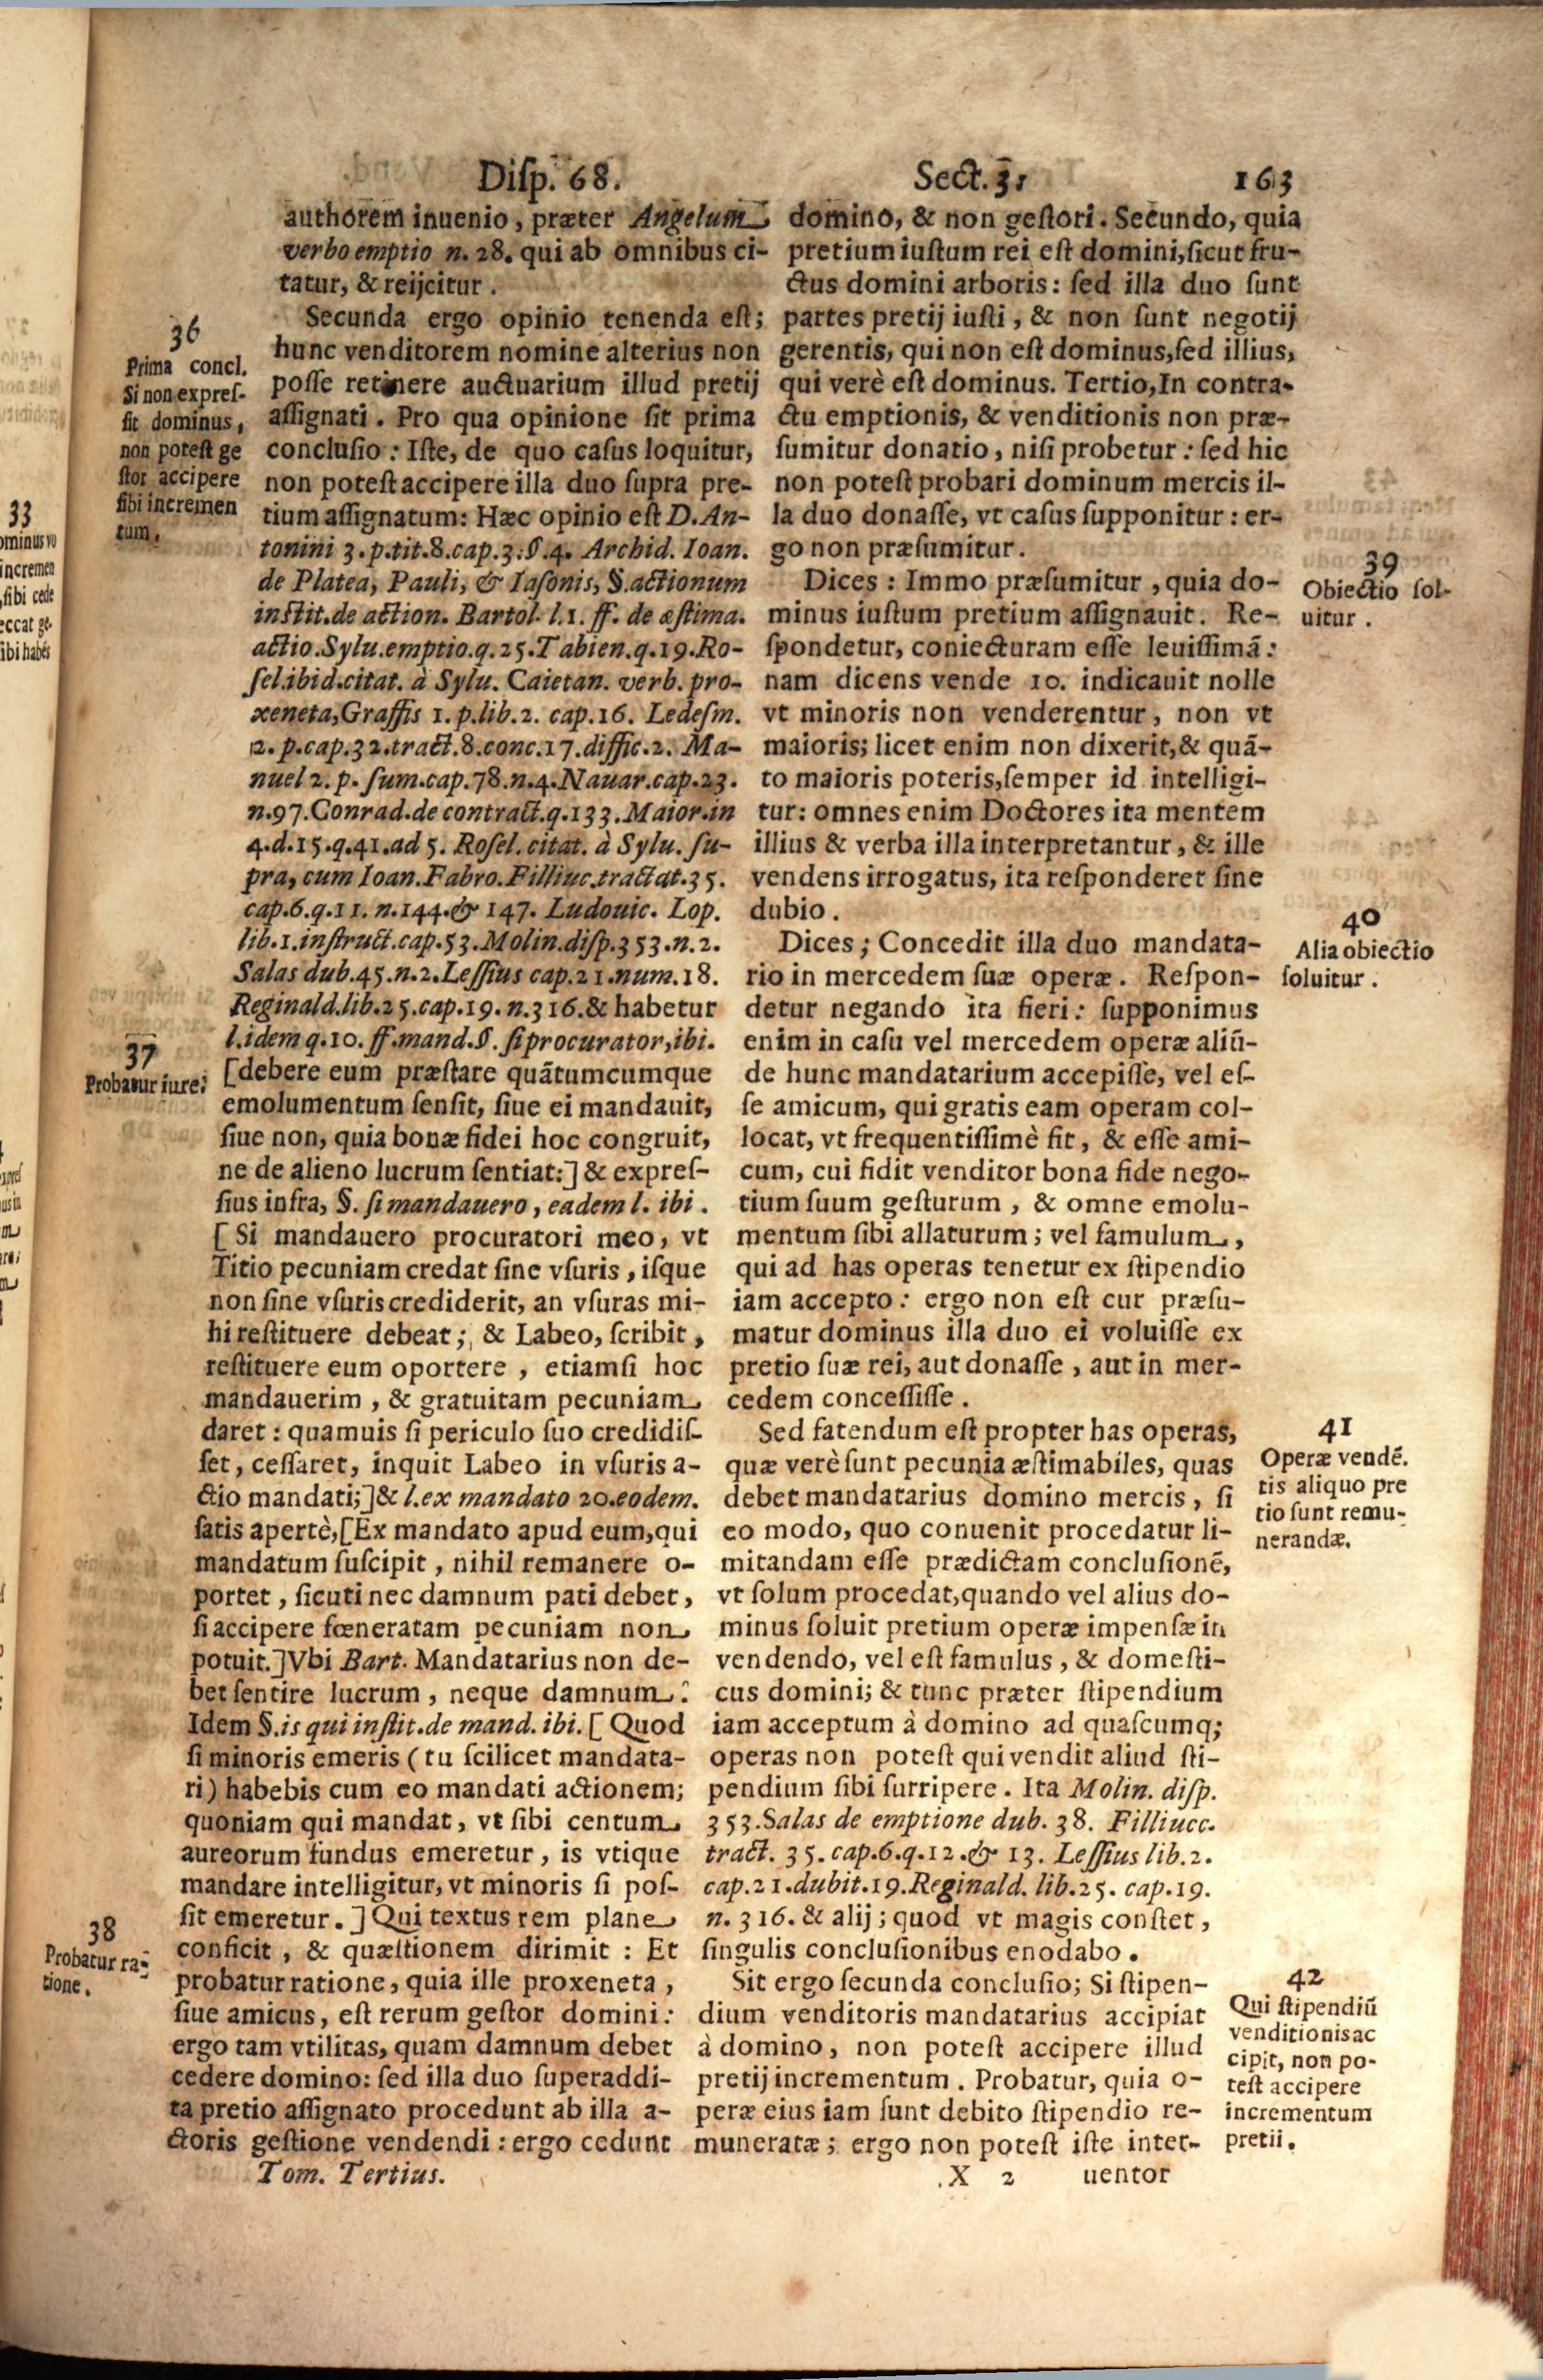 Disp. 68.
Sect. 3.
163
authorem inuenio, præter Angelum
verbo emptio n. 28. qui ab omnibus ci-
tatur, & reijcitur.
36
Prima concl.
Si non expres-
sit dominus,
non potest ge
stor accipere
sibi incremen
tum.
Secunda ergo opinio tenenda est;
hunc venditorem nomine alterius non
posse retinere auctuarium illud pretij
assignati. Pro qua opinione sit prima
conclusio: Iste, de quo casus loquitur,
non potest accipere illa duo supra pre-
tium assignatum: Hæc opinio est D. An-
tonini 3. p. tit. 8. cap. 3. §. 4. Archid. Ioan.
de Platea, Pauli, & Iasonis, §. actionum
instit. de action. Bartol. l. 1. ff. de æstima.
actio. Sylu. emptio. q. 25. Tabien. q. 19. Ro-
sel. ibid. citat. à Sylu. Caietan. verb. pro-
xeneta, Graffis 1. p. lib. 2. cap. 16. Ledesm.
2. p. cap. 32. tract. 8. conc. 17. diffic. 2. Ma-
nuel 2. p. sum. cap. 78. n. 4. Nauar. cap. 23.
n. 97. Conrad. de contract. q. 133. Maior. in
4. d. 15. q. 41. ad 5. Rosel. citat. à Sylu. su-
pra, cum Ioan. Fabro. Filliuc. tractat. 35.
cap. 6. q. 11. n. 144. & 147. Ludouic. Lop.
lib. 1. instruct. cap. 53. Molin. disp. 353. n. 2.
Salas dub. 45. n. 2. Lessius cap. 21. num. 18.
Reginald. lib. 25. cap. 19. n. 316. & habetur
l. idem q. 10. ff. mand. §. si procurator, ibi.
37
Probatur iure.
[debere eum præstare quãtumcumque
emolumentum sensit, siue ei mandauit,
siue non, quia bonæ fidei hoc congruit,
ne de alieno lucrum sentiat:] & expres-
sius infra, §. si mandauero, eadem l. ibi.
[Si mandauero procuratori meo, vt
Titio pecuniam credat sine vsuris, isque
non sine vsuris crediderit, an vsuras mi-
hi restituere debeat; & Labeo, scribit,
restituere eum oportere, etiamsi hoc
mandauerim, & gratuitam pecuniam
daret: quamuis si periculo suo credidis-
set, cessaret, inquit Labeo in vsuris a-
ctio mandati;] & l. ex mandato 20. eodem.
satis apertè, [Ex mandato apud eum, qui
mandatum suscipit, nihil remanere o-
portet, sicuti nec damnum pati debet,
si accipere fœneratam pecuniam non
potuit.] Vbi Bart. Mandatarius non de-
bet sentire lucrum, neque damnum:
Idem §. is qui instit. de mand. ibi. [Quod
si minoris emeris (tu scilicet mandata-
ri) habebis cum eo mandati actionem;
quoniam qui mandat, vt sibi centum
aureorum fundus emeretur, is vtique
mandare intelligitur, vt minoris si pos-
sit emeretur.] Qui textus rem plane
conficit, & quæstionem dirimit: Et
38
Probatur ra-
tione.
probatur ratione, quia ille proxeneta,
siue amicus, est rerum gestor domini:
ergo tam vtilitas, quam damnum debet
cedere domino: sed illa duo superaddi-
ta pretio assignato procedunt ab illa a-
ctoris gestione vendendi: ergo cedunt
Tom. Tertius.
domino, & non gestori. Secundo, quia
pretium iustum rei est domini, sicut fru-
ctus domini arboris: sed illa duo sunt
partes pretij iusti, & non sunt negotij
gerentis, qui non est dominus, sed illius,
qui verè est dominus. Tertio, In contra-
ctu emptionis, & venditionis non præ-
sumitur donatio, nisi probetur: sed hic
non potest probari dominum mercis il-
la duo donasse, vt casus supponitur: er-
go non præsumitur.
39
Obiectio sol-
uitur.
Dices: Immo præsumitur, quia do-
minus iustum pretium assignauit. Re-
spondetur, coniecturam esse leuissimã:
nam dicens vende 10. indicauit nolle
vt minoris non venderentur, non vt
maioris; licet enim non dixerit, & quã-
to maioris poteris, semper id intelligi-
tur: omnes enim Doctores ita mentem
illius & verba illa interpretantur, & ille
vendens irrogatus, ita responderet sine
dubio.
40
Alia obiectio
soluitur.
Dices; Concedit illa duo mandata-
rio in mercedem suæ operæ. Respon-
detur negando ita fieri: supponimus
enim in casu vel mercedem operæ aliũ-
de hunc mandatarium accepisse, vel es-
se amicum, qui gratis eam operam col-
locat, vt frequentissimè fit, & esse ami-
cum, cui fidit venditor bona fide nego-
tium suum gesturum, & omne emolu-
mentum sibi allaturum; vel famulum,
qui ad has operas tenetur ex stipendio
iam accepto: ergo non est cur præsu-
matur dominus illa duo ei voluisse ex
pretio suæ rei, aut donasse, aut in mer-
cedem concessisse.
41
Operæ vendẽ.
tis aliquo pre
tio sunt remu-
nerandæ.
Sed fatendum est propter has operas,
quæ verè sunt pecunia æstimabiles, quas
debet mandatarius domino mercis, si
eo modo, quo conuenit procedatur li-
mitandam esse prædictam conclusionẽ,
vt solum procedat, quando vel alius do-
minus soluit pretium operæ impensæ in
vendendo, vel est famulus, & domesti-
cus domini; & tunc præter stipendium
iam acceptum à domino ad quascumq;
operas non potest qui vendit aliud sti-
pendium sibi surripere. Ita Molin. disp.
353. Salas de emptione dub. 38. Filliucc.
tract. 35. cap. 6. q. 12. & 13. Lessius lib. 2.
cap. 21. dubit. 19. Reginald. lib. 25. cap. 19.
n. 316. & alij; quod vt magis constet,
singulis conclusionibus enodabo.
42
Qui stipendiũ
venditionis ac
cipit, non po-
test accipere
incrementum
pretii.
Sit ergo secunda conclusio; Si stipen-
dium venditoris mandatarius accipiat
à domino, non potest accipere illud
pretij incrementum. Probatur, quia o-
peræ eius iam sunt debito stipendio re-
muneratæ; ergo non potest iste inter-
X 2
uentor